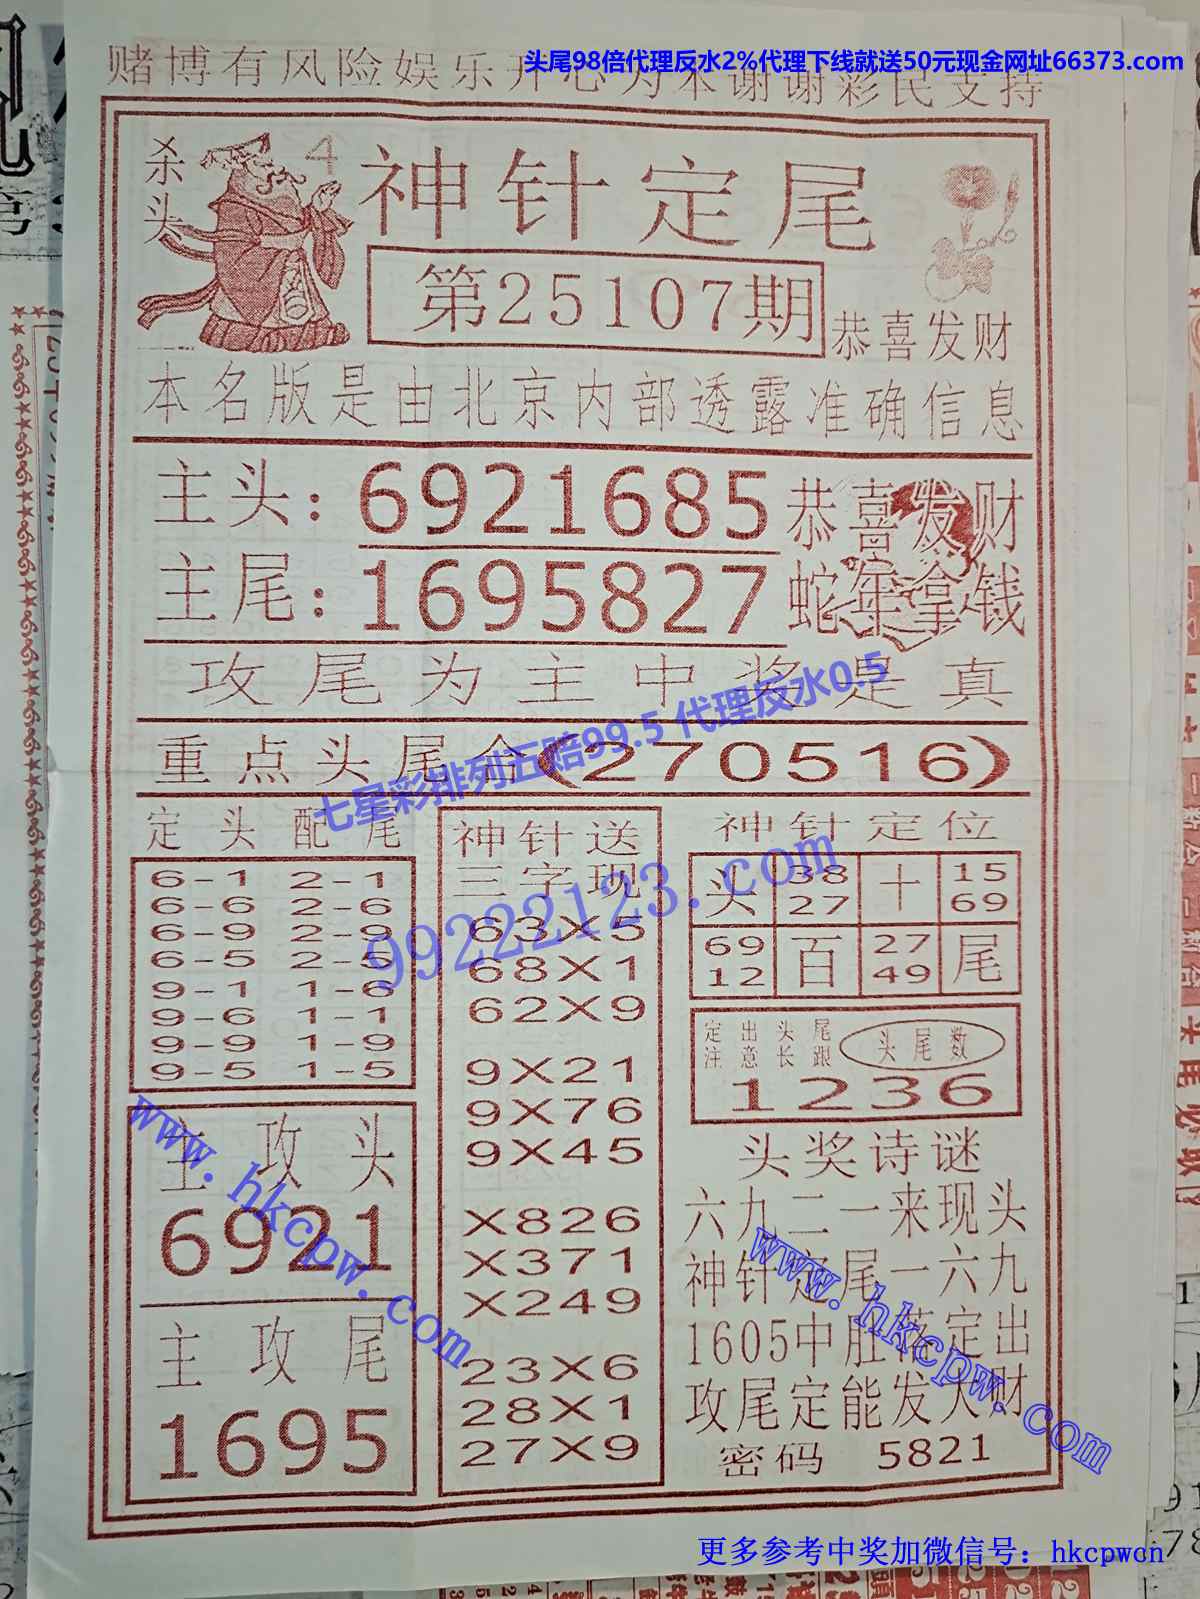 头尾98倍代理反水2%代理下线就送50元现金网址66373.com
赌博有风险娱乐开心为本谢谢彩民支持
杀头 4
神针定尾
第25107期
恭喜发财
本名版是由北京内部透露准确信息
主头：6921685 恭喜发财
主尾：1695827 蛇年拿钱
攻尾为主中奖是真
七星彩排列五赔99.5 代理反水0.5
重点头尾合(270516)
定头配尾
6-1 2-1
6-6 2-6
6-9 2-9
6-5 2-5
9-1 1-6
9-6 1-1
9-9 1-9
9-5 1-5
主攻头
6921
主攻尾
1695
神针送
三字现
63X5
68X1
62X9
9X21
9X76
9X45
X826
X371
X249
23X6
28X1
27X9
99222123.com
神针定位
头 38 十 15
27 69
69 百 27 尾
12 49
定出头尾
注意长跟
头尾数
1236
头奖诗谜
六九二一来现头
神针定尾一六九
1605中肚落定出
攻尾定能发大财
密码 5821
www.hkcpw.com
www.hkcpw.com
更多参考中奖加微信号：hkcpwcn